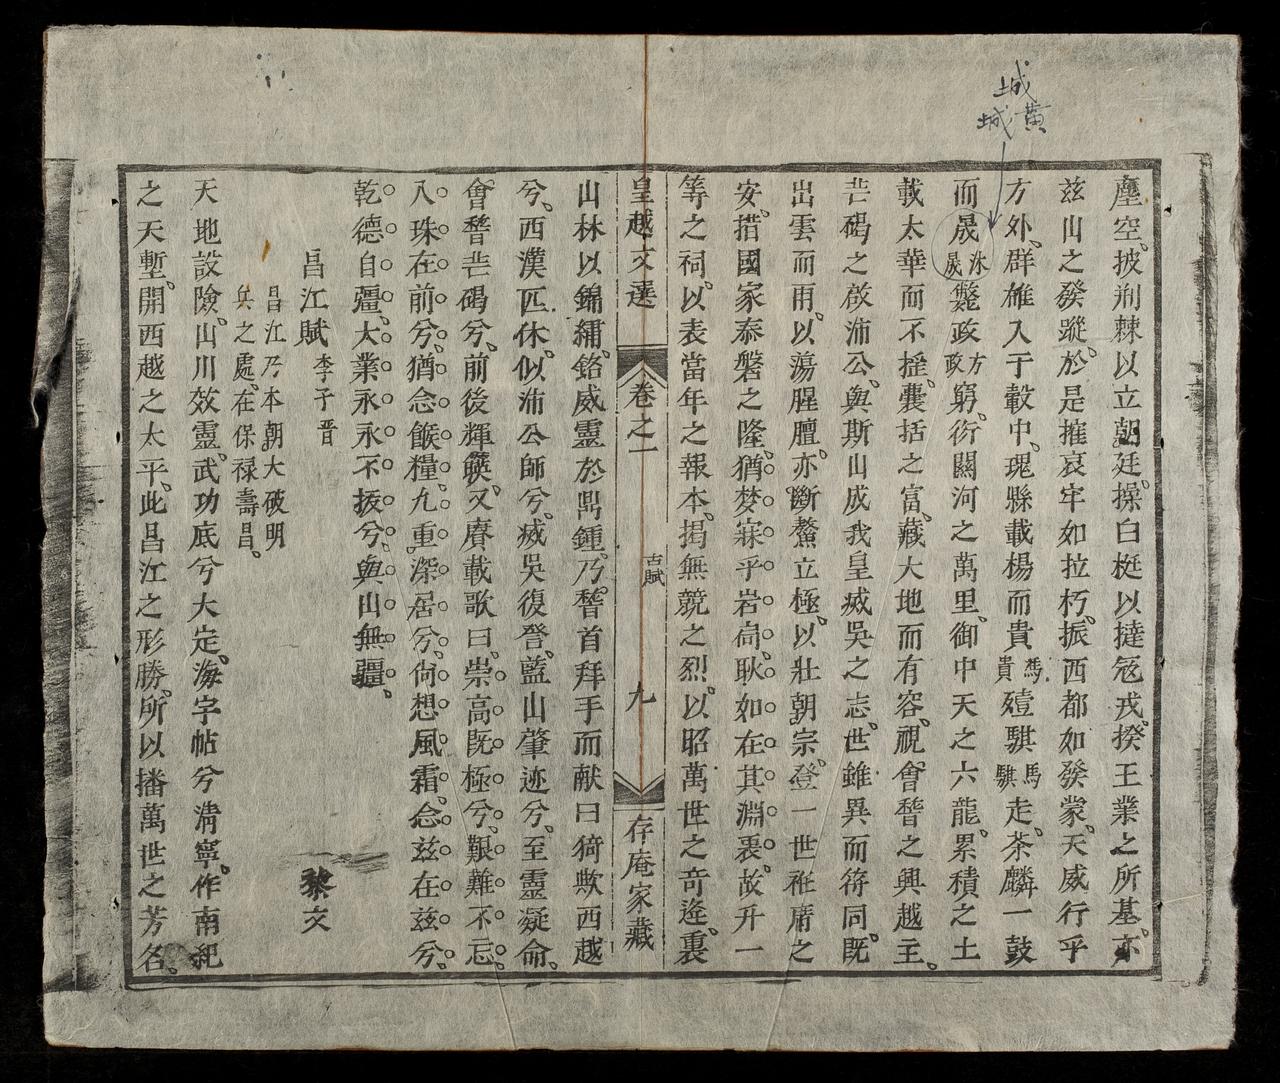 城
黃
城
塵空。披荆棘以立朝廷。操白梃以撻冦戎。揆王業之所基。亦
兹山之發蹤。於是摧哀牢如拉朽。振西都如發蒙。天威行乎
方外。群雄入于彀中。琨縣載楊而貴馮貴殪騏馬騏走。茶麟一鼓
而晟洙晟斃政方政窮。衍關河之萬里。御中天之六龍。累積之土
載太華而不摇。囊括之富。藏大地而有容。視會稽之興越主。
芒碭之啟沛公。與斯山成我皇滅吳之志。世雖異而符同。既
出雲而雨。以蕩腥膻。亦斷鰲立極。以壯朝宗。登一世袵席之
安。措國家泰磐之隆。猶梦寐乎岩向。耿如在其淵衷。故升一
等之祠。以表當年之報本。揭無競之烈。以昭萬世之奇逢。裏
皇越文選 卷之一 古賦 九 存庵家藏
山林以錦繡。銘威靈於鼎鍾。乃稽首拜手而献曰猗歟西越
兮。西漢匹休。似沛公師兮。滅吳復登。藍山肇迹兮。至靈凝命。
會稽芒碭兮。前後輝暎。又賡載歌曰。崇高既極兮。艱難不忘。
入珠在前兮。猶念餱糧。九重深居兮。尙想風霜。念兹在兹兮。
乾德自彊。大業永永不拔兮。與山無疆。
昌江賦 李子晋 黎文
昌江乃本朝大破明
兵之處。在保禄壽昌。
天地設險。山川效靈。武功底兮大定。海宇帖兮清寧。作南紀
之天塹。開西越之太平。此昌江之形勝。所以播萬世之芳名。